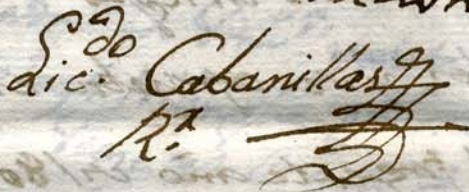 Lic.do Cabanillas
R.a